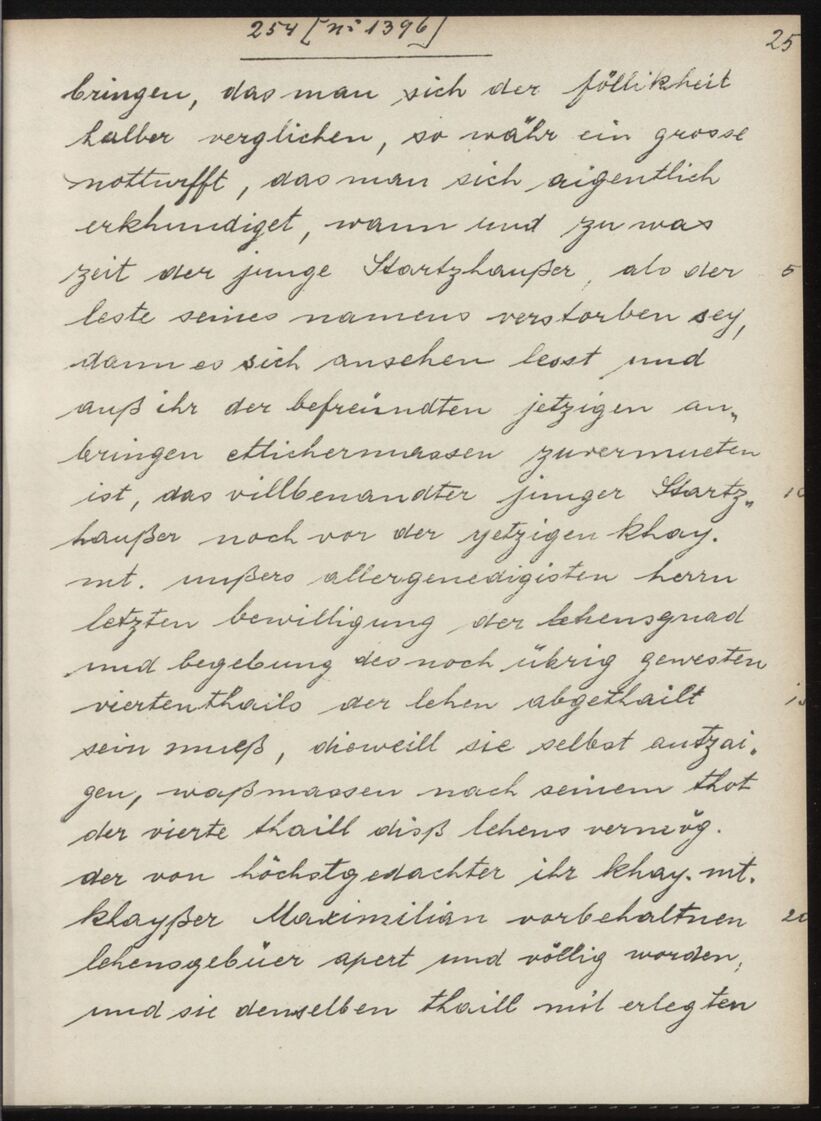 254 [nº 1396]
25
bringen, das man sich der föllikheit
halber verglichen, so währ ein grosse
notturfft, das man sich aigentlich
erkhundiget, wann und zu was
zeit der junge Startzhaußer, als der 5
leste seines namens verstorben sey,
dann es sich ansehen lesst und
auß ihr der befreündten jetzigen an„
bringen ettichermassen zuvermueten
ist, das villbenandter junger Startz„ 10
haußer noch vor der yetzigen khay.
mt. unßers allergenedigisten herrn
letzten bewilligung der lehensgnad
und begebung des noch übrig gewesten
viertenthails der lehen abgethailt
sein mueß, dieweill sie selbst antzai„
gen, waßmassen nach seinem thot
der vierte thaill diß lehens vermög.
der von höchstgedachter ihr khay. mt.
khayßer Maximilian vorbehaltnen 20
lehensgebüer apert und völlig worden,
und sie denselben thaill mit erlegten